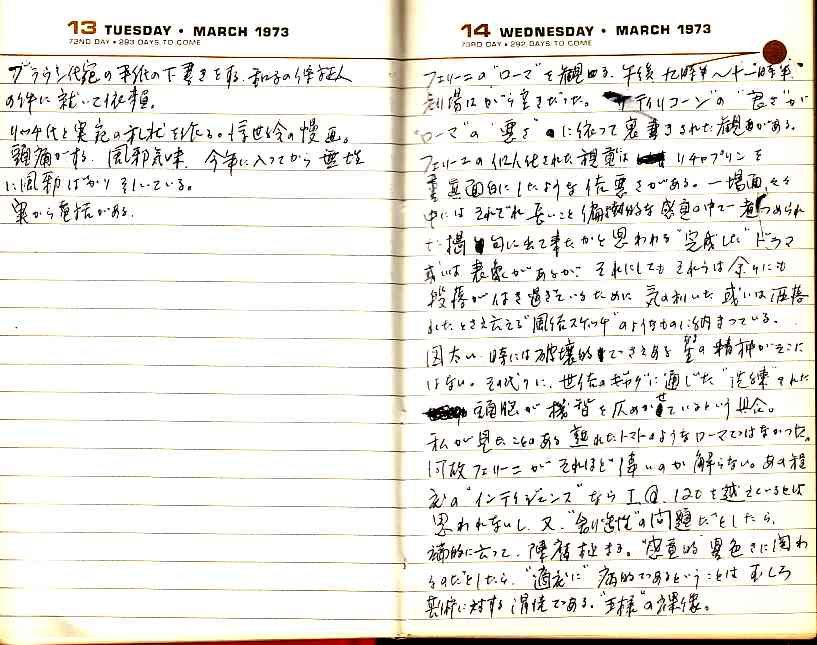 13 TUESDAY • MARCH 1973
72ND DAY • 293 DAYS TO COME
ブラウン氏宛の手紙の下書きをする。和子の保証人
の件に就いて依頼。
リッチ氏と実宛の礼状を
頭痛がする。風邪気味。今年に入ってから無性
に風邪ばかり引いている。
実から電話がある。
14 WEDNESDAY • MARCH 1973
73RD DAY • 292 DAYS TO COME
フェリーニの"ローマ"を観る。午後九時半〜十一時半。
劇場はがら空きだった。"サテイリコーン"の"良さ"が
"ローマ"の"悪さ"に依って裏書きされた観がある。
フェリーニの 化された視覚は チャップリンを
真面目にしたような 悪さがある。一場面々々
中にはそれぞれ長いこと偏執的な感覚の中で煮つめられ
た揚句に出て来たかと思われる"完成した"ドラマ
或いは表象があるが、それにしてもそれらは余りにも
が付き過ぎているために 気の利いた 或いは
れたとさえ云える"風俗スケッチ"のようなものに納まっている。
図太い、時には破壊的でさえある 精神がそこに
はない。その代りに、世俗のギャグに通じた"洗練"された
頭脳が機智を仄めかせているという具合。
私が見たことのある熟れたトマトのようなローマではなかった。
何故フェリーニがそれほど偉いのか解らない。あの程
度の"インテリジェンス"なら I.Q. 120を越えているとは
思われないし、又、"創造性"の問題だとしたら、
端的に云って、陳腐極まる。"感覚的"異色さに関わ
るのだとしたら、"適度に"病的であるということはむしろ
芸術に対する冒涜である。"王様"の裸像。